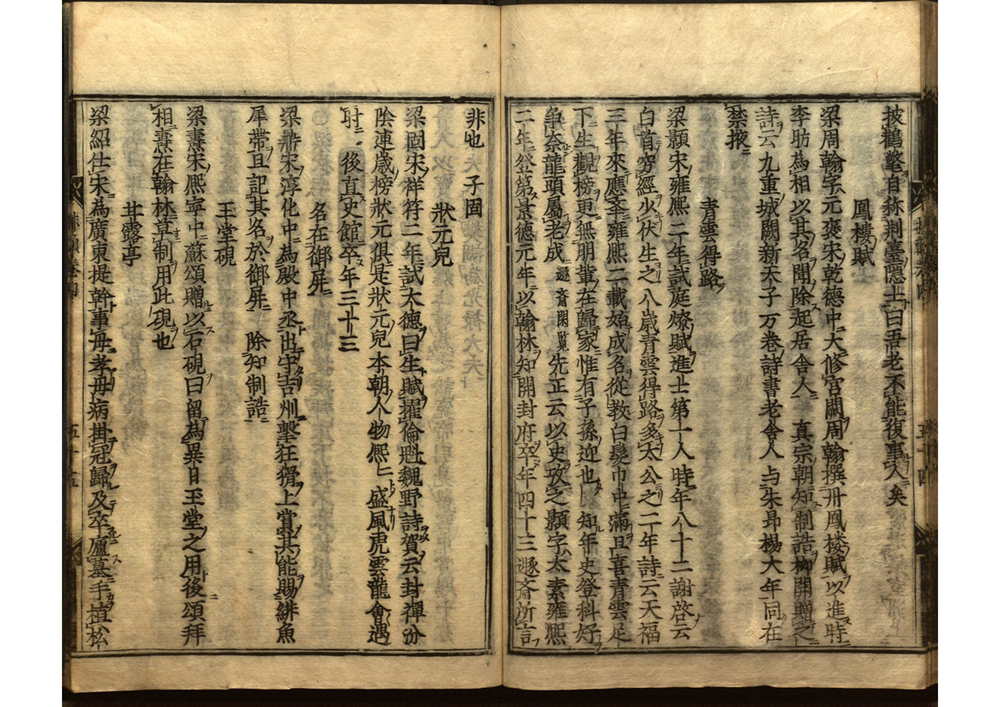 披鶴氅自称荆臺隱士曰吾老不能復事人矣
鳳樓賦
梁周翰字元褒宋乾德中大修宮闕周翰撰丹鳳楼賦以進時
李昉為相以其名聞除起居舍人真宗朝知制誥柳開贈之
詩云九重城闕新天子万卷詩書老舍人与朱昻楊大年同在
禁掖
青雲得路
梁顥宋雍熙二年試庭燎賦進士第一人時年八十二謝啓云
白首窮經少伏生之八歲青雲得路多太公之二年詩云天福
三年來應𪪺雍熙二載始成名從教白髮巾中滿且喜青雲足
下生觀榜更無朋輩在歸家惟有子孫迎也知年史登科好
争奈龍頭屬老成 遯斎閑覽 先正云以史攷之顥字太素雍熙
二年登第景德元年以翰林知開封府卒年四十三遯斎所言
非也 子固
狀元兒
梁固宋祥符二年試大德曰生賦擢倫魁魏野詩賀云封禪汾
陰連歲榜狀元俱是狀元兒本朝人物熙二盛風虎雲龍會遇
時 後直史館卒年三十三
名在御屏
梁鼎宋淳化中為殿中丞出守吉州槧狂猾上賞其能賜緋魚
犀帶且記其名於御屏 除知制誥
玉堂硯
梁燾宋熙寧中蘇頌贈以石硯曰留為異日玉堂之用後頌拜
相燾在翰林草制用此硯也
甘露亭
梁紹仕宋為廣東提幹事母孝母病掛冠歸及卒廬墓手植松
五十五